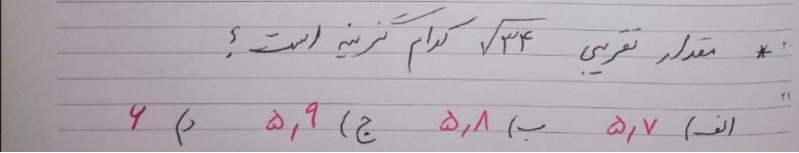 ۲۰ * مقدار تقریبی √۳۴ کدام گزینه است ؟
۲۱ الف) ۵٫۷ ب) ۵٫۸ ج) ۵٫۹ د) ۶